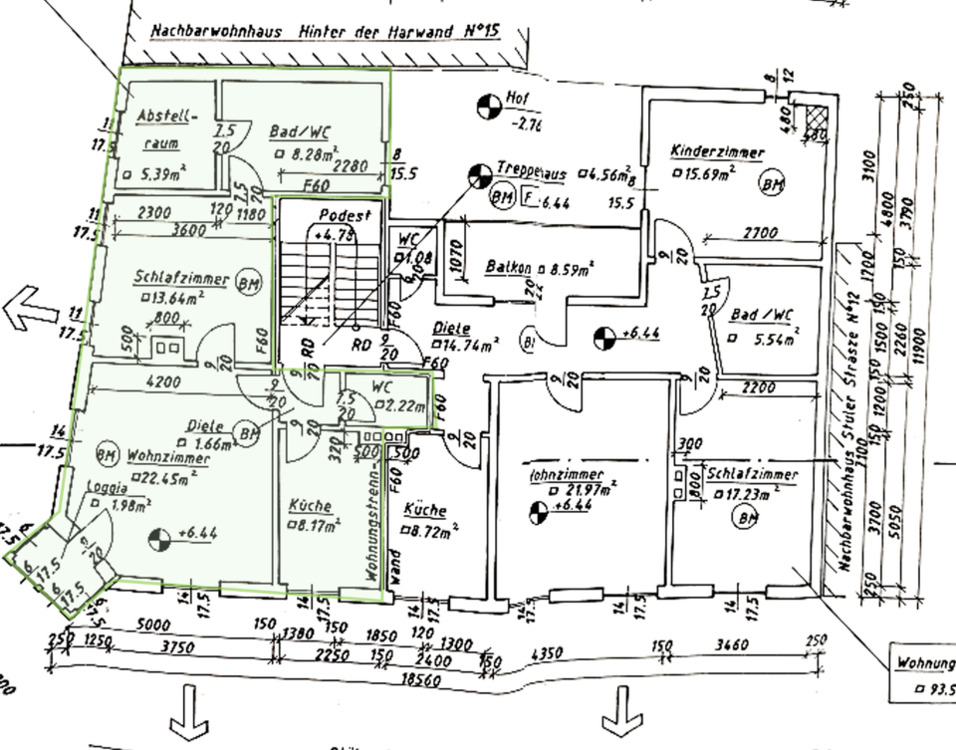 Nachbarwohnhaus Hinter der Harwand N°15
8
12
250
11
17.5
Abstell-
raum
5.39m²
7.5
20
Bad/WC
8.28m²
2280
F60
7.5
20
8
15.5
Hof
-2.76
Treppe
aus
4.56m²
BM
F
6.44
8
15.5
Kinderzimmer
15.69m²
BM
480
480
3100
4800
3790
2700
11
17.5
2300
120
1180
3600
Podest
+4.78
WC
1.08
1070
Balkon
8.59m²
9
20
7.5
20
1700
150
Schlafzimmer
13.64m²
BM
800
500
11
17.5
F60
RD
RD
9
20
F60
F60
Diele
14.74m²
+6.44
Bad/WC
5.54m²
150
1500
2260
11900
Nachbarwohnhaus Stuler Strasze N°12
9
20
9
20
9
20
4200
9
20
WC
2.22m²
7.5
20
F60
9
20
9
20
2200
150
1200
150
7100
14
17.5
Diele
1.66m²
BM
BM
Wohnzimmer
22.45m²
9
20
320
500
500
9
20
300
800
Loggia
1.98m²
Küche
8.17m²
Wohnungstrenn-
wand
F60
Küche
8.72m²
ohnzimmer
21.97m²
+6.44
Schlafzimmer
17.23m²
BM
3700
5050
250
9
20
+6.44
17.5
6
17.5
6
17.5
17.5
14
17.5
14
17.5
14
17.5
14
17.5
14
17.5
5000
150
1380
150
1850
120
1300
250
1250
3750
2250
150
2400
150
4350
150
3460
250
18560
Wohnung
93.5